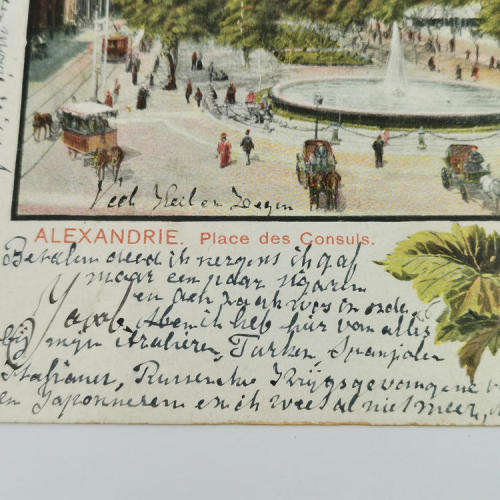 Veel Heil en Zegen
ALEXANDRIE. Place des Consuls.
Betalen deed ik nergens ik gaf
maar een paar sigaren
en den zaak was in orde.
ik heb hier van alles
bij mijn Arabieren, Turken, Spanjolen
Italianer, Russische Krijgsgevangene
en Japonneren en ik weet al niet meer,